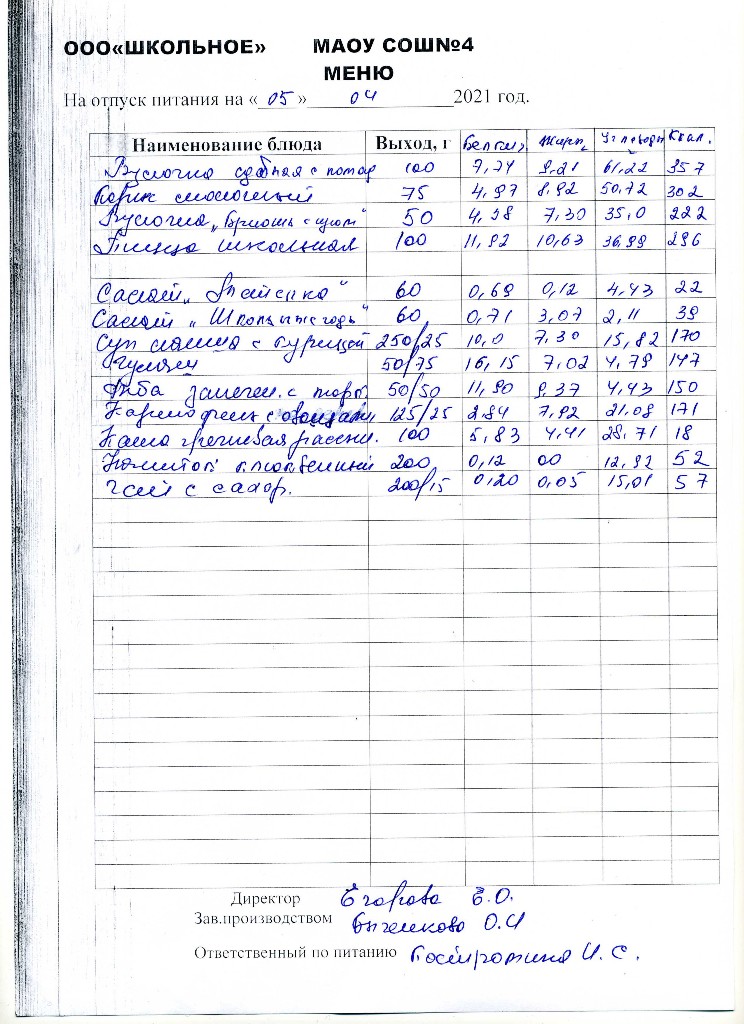 ООО«ШКОЛЬНОЕ» МАОУ СОШ№4
МЕНЮ
На отпуск питания на « 05 » 04 2021 год.
Наименование блюда Выход, г Белки, Жиры, Углеводы Ккал.
Булочка сдобная с помад 100 7,74 9,21 61,22 357
Коржик молочный 75 4,97 8,92 50,72 302
Булочка „Бриошь с изюм" 50 4,98 7,30 35,0 222
Пицца школьная 100 11,92 10,63 36,99 296
Салат „ " 60 0,69 0,12 4,43 22
Салат „Школьные годы" 60 0,71 3,07 2,11 39
Суп лапша с курицей 250/25 10,0 7,30 15,82 170
Гуляш 50/75 16,15 7,02 4,79 147
Рыба запечен. с 50/50 11,90 9,37 4,43 150
Картофель с овощами, 125/25 2,84 7,92 21,08 171
Каша гречневая рассып. 100 5,83 4,41 28,71 18
Компот 200 0,12 00 12,92 52
Чай с сахар. 200/15 0,20 0,05 15,01 57
Директор Егорова Е.О.
Зав.производством О.И
Ответственный по питанию Костромина И.С.